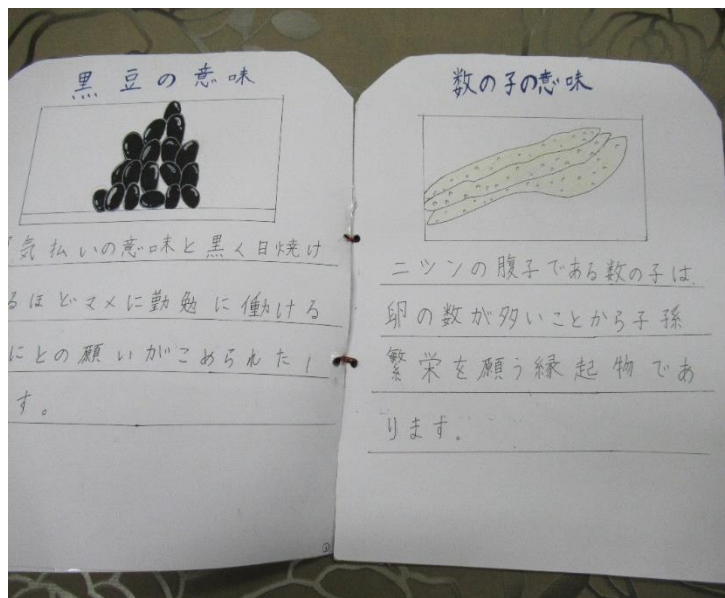 黒豆の意味
気払いの意味と黒く日焼け
るほどマメに勤勉に働ける
にとの願いがこめられた
す。
数の子の意味
ニツンの腹子である数の子は、
卵の数が多いことから子孫
繁栄を願う縁起物であ
ります。